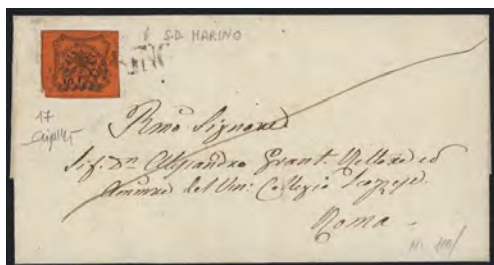 S.D. MARINO
17
Rmo Signore
Sig. Dn Alessandro Grant. Rettore ed
Ammre del Ven: Collegio Scozzese.
Roma